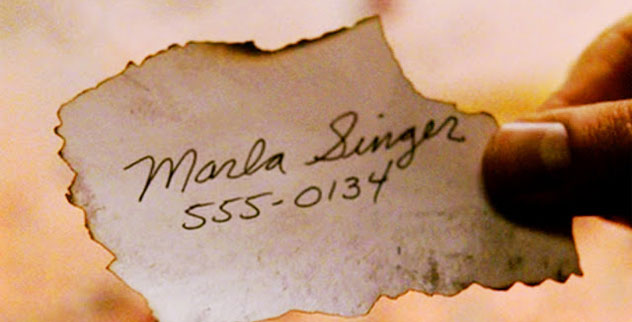 Marla Singer
555-0134